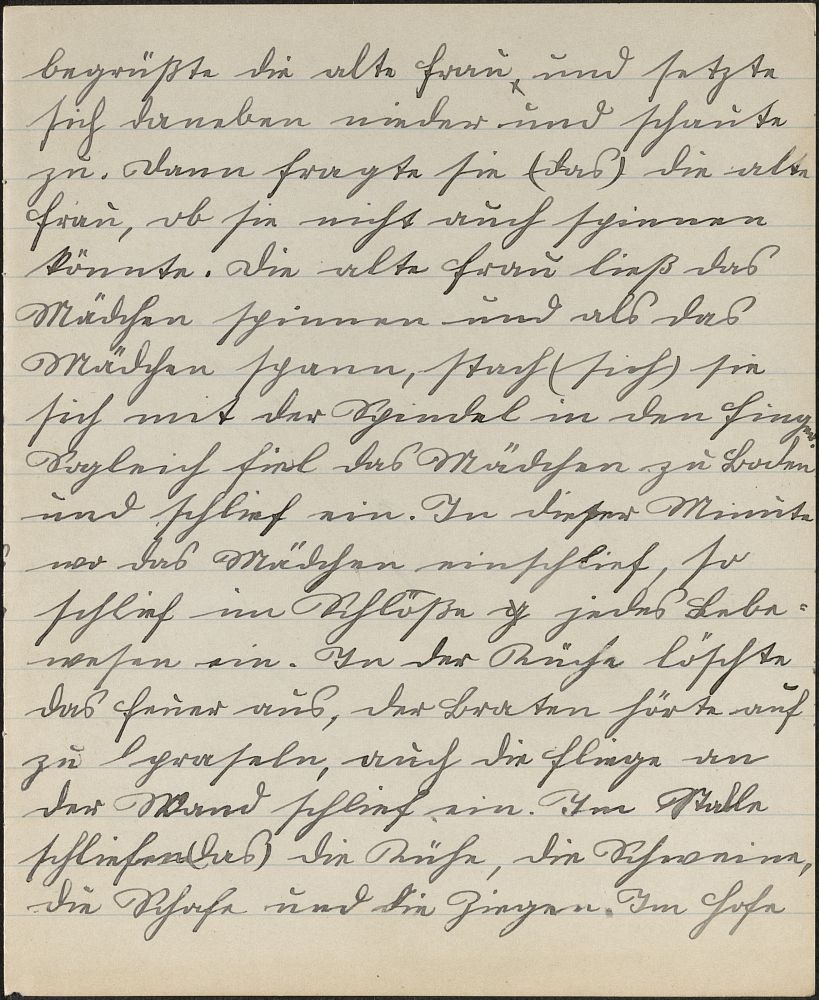 begrüßte die alte Frau, und setzte
sich daneben nieder und schaute
zu. Dann fragte sie (das) die alte
Frau, ob sie nicht auch spinnen
könnte. Die alte Frau ließ das
Mädchen spinnen und als das
Mädchen spann, stach (sich) sie
sich mit der Spindel in den Finger.
Sogleich fiel das Mädchen zu Boden
und schlief ein. In dieser Minute
wo das Mädchen einschlief, so
schlief im Schloße jedes Lebe=
wesen ein. In der Küche löschte
das Feuer aus, der Braten hörte auf
zu praseln, auch die Fliege an
der Wand schlief ein. Im Stalle
schliefen (das) die Kühe, die Schweine,
die Schafe und die Ziegen. Im Hofe